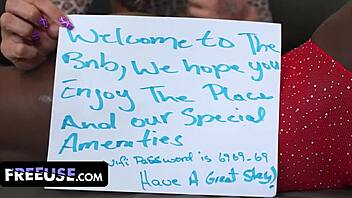 Welcome to The
Bnb, We hope you
Enjoy The Place
And our Special
Amenities
wifi Password is 6969-69
Have A Great Stay!
FREEUSE.COM